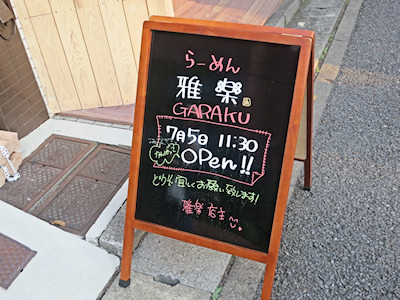 らーめん
雅楽
GARAKU
7月5日 11:30
OPen!!
宜しくお願い致します!
雅楽 店主